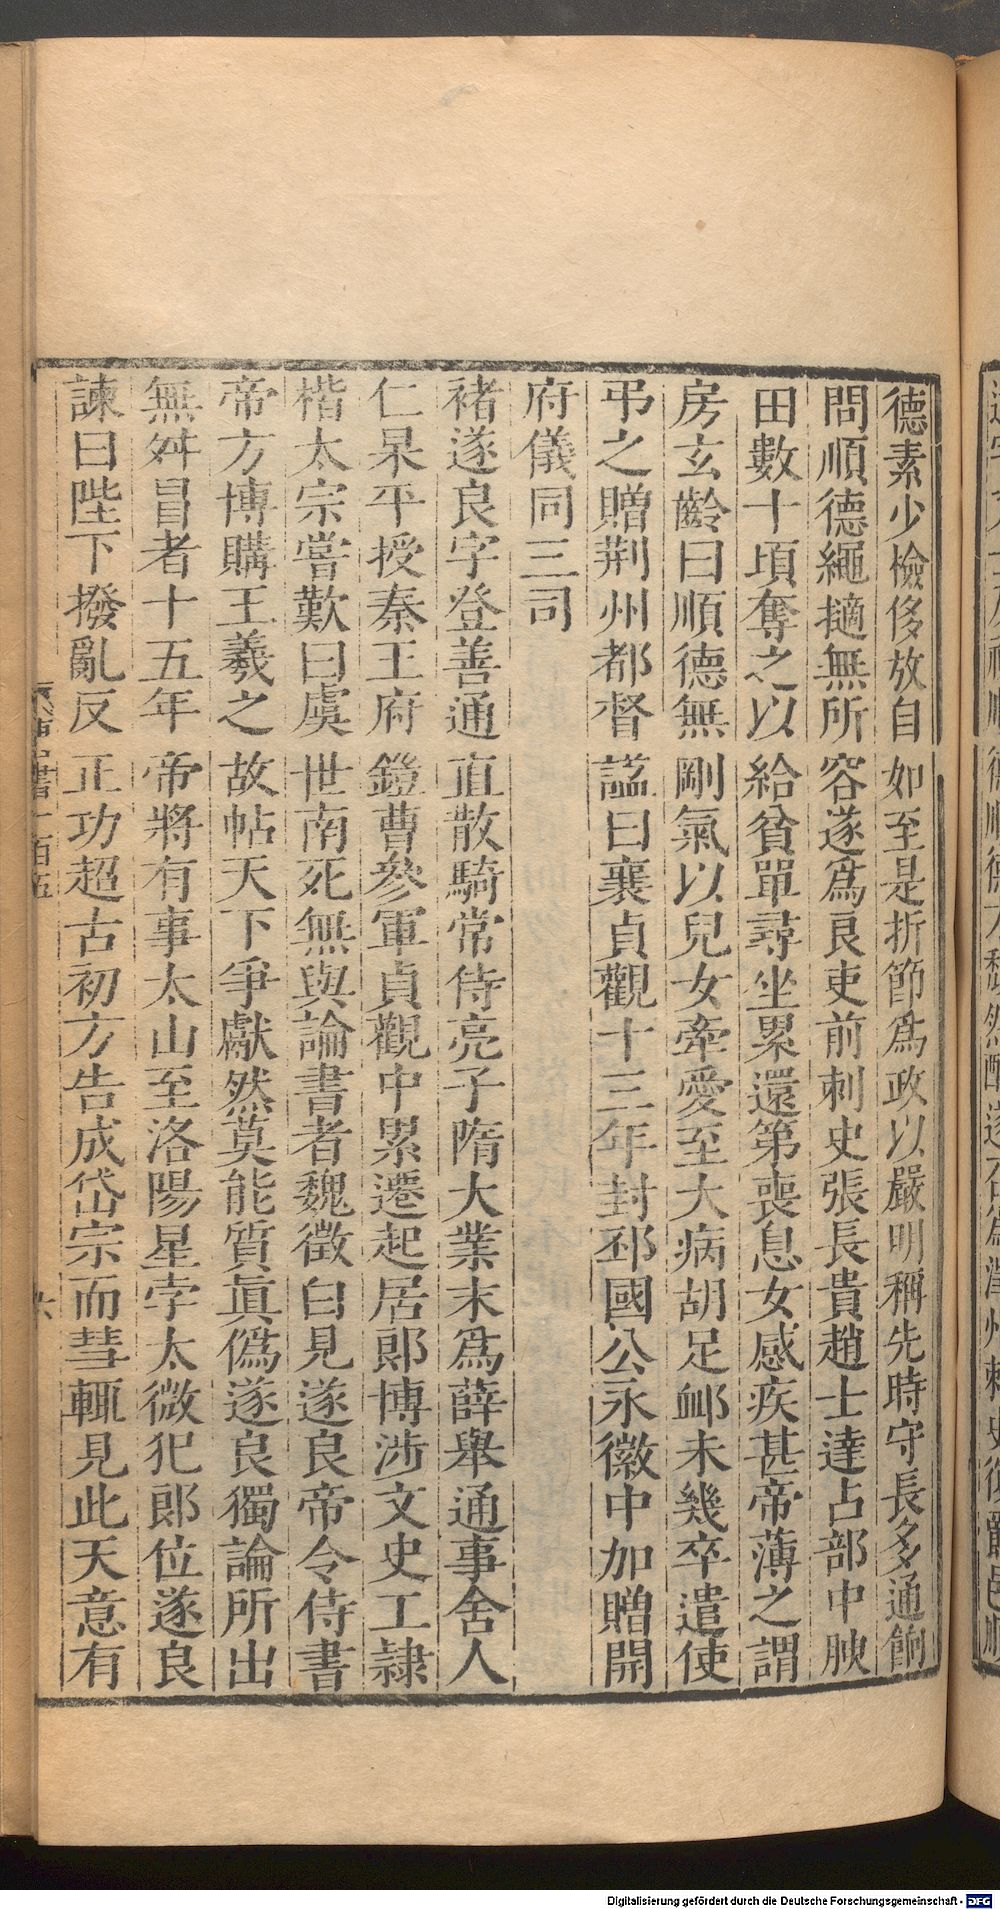 德素少檢侈放自如至是折節爲政以嚴明稱先時守長多通餉
問順德繩擿無所容遂爲良吏前刺史張長貴趙士達占部中腴
田數十頃奪之以給貧單尋坐累還第喪息女感疾甚帝薄之謂
房玄齡曰順德無剛氣以兒女牽愛至大病胡足卹未幾卒遣使
弔之贈荆州都督諡曰襄貞觀十三年封邳國公永徽中加贈開
府儀同三司
褚遂良字登善通直散騎常侍亮子隋大業末爲薛舉通事舍人
仁杲平授秦王府鎧曹參軍貞觀中累遷起居郎博涉文史工隸
楷太宗嘗歎曰虞世南死無與論書者魏徵白見遂良帝令侍書
帝方博購王羲之故帖天下爭獻然莫能質眞僞遂良獨論所出
無舛冒者十五年帝將有事太山至洛陽星孛太微犯郎位遂良
諫曰陛下撥亂反正功超古初方告成岱宗而彗輒見此天意有
Digitalisierung gefördert durch die Deutsche Forschungsgemeinschaft - DFG